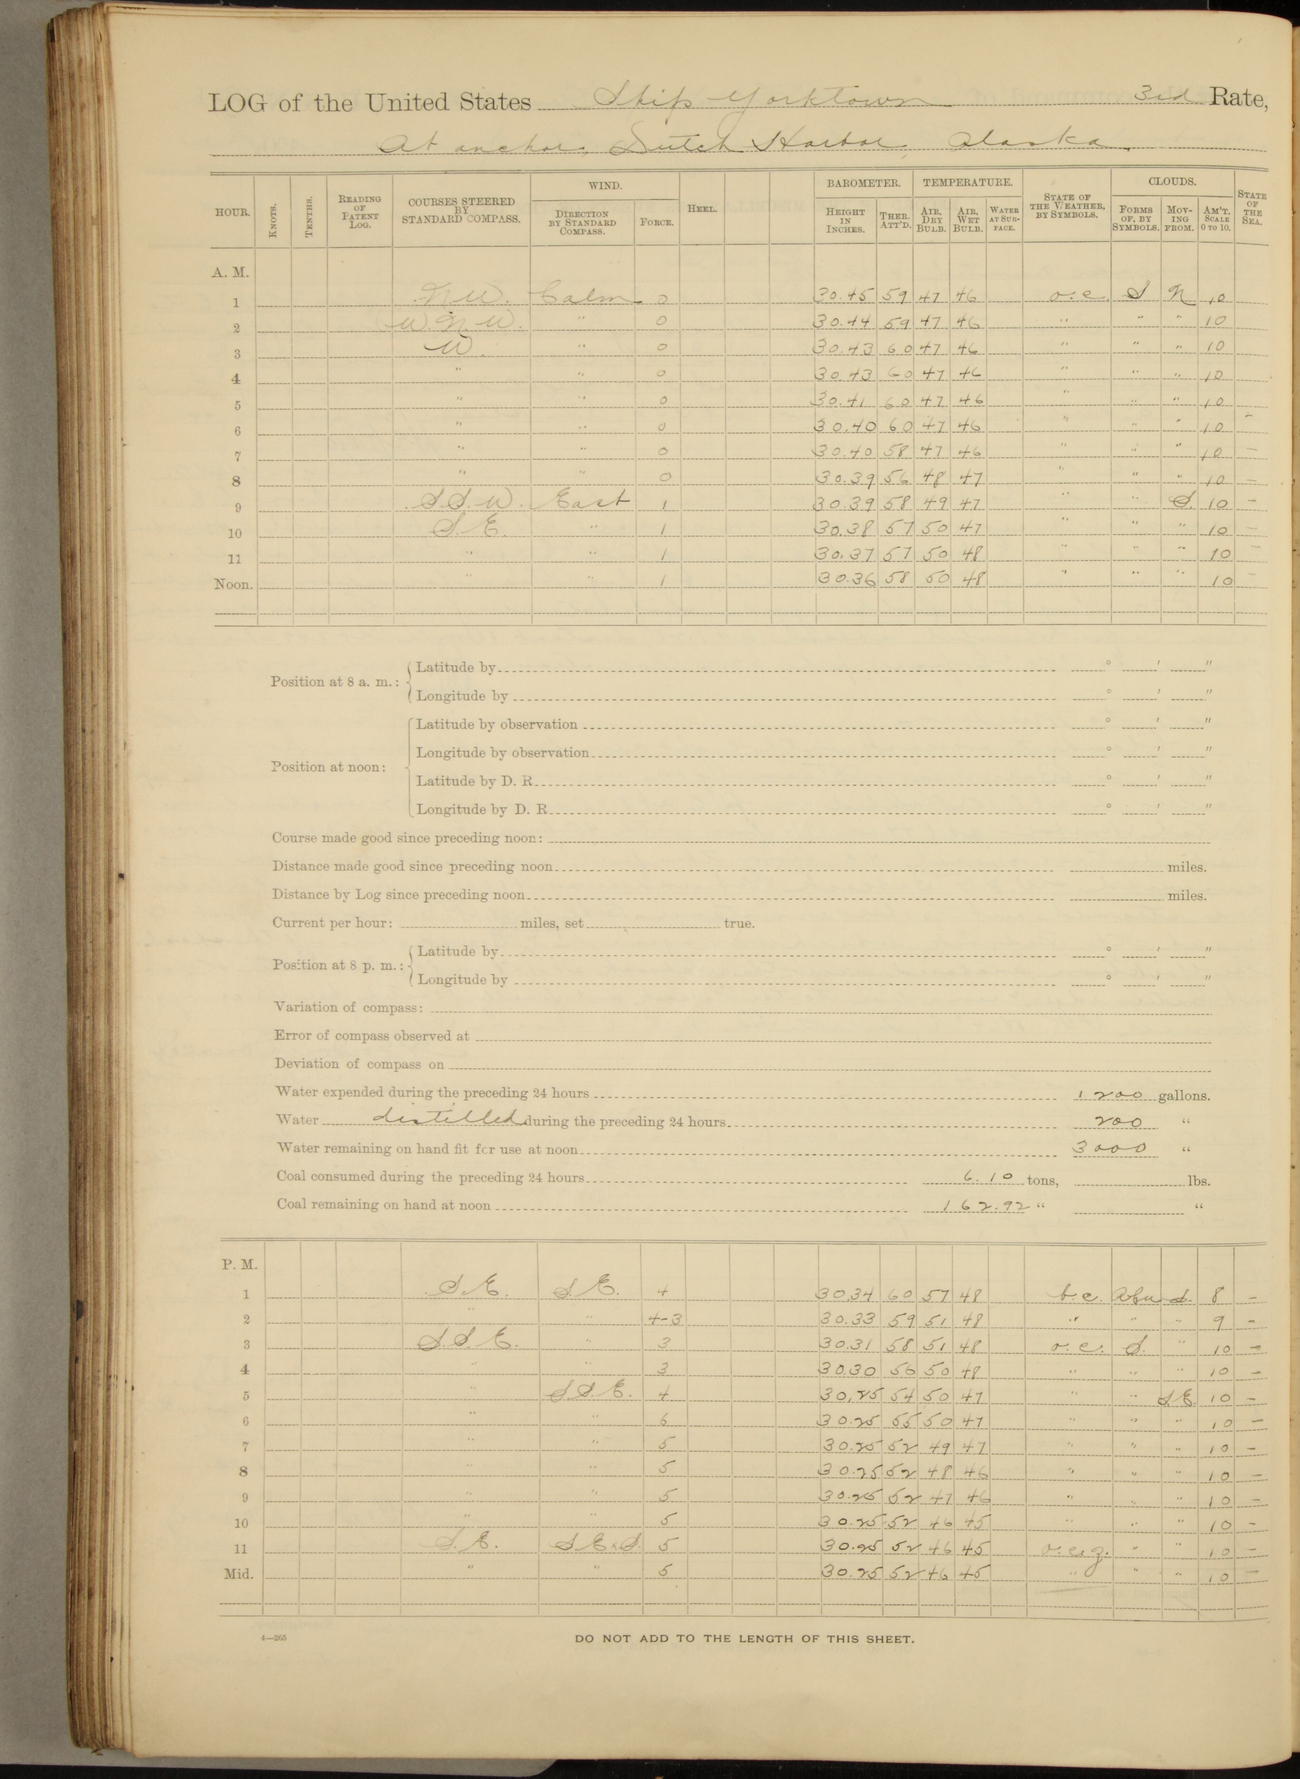 LOG of the United States Ship Yorktown 3rd Rate,
At anchor, Dutch Harbor, Alaska.
HOUR. KNOTS. TENTHS. READING OF PATENT LOG. COURSES STEERED BY STANDARD COMPASS. WIND. DIRECTION BY STANDARD COMPASS. FORCE. HEEL. BAROMETER. HEIGHT IN INCHES. THER. ATT'D. TEMPERATURE. AIR, DRY BULB. AIR, WET BULB. WATER AT SURFACE. STATE OF THE WEATHER, BY SYMBOLS. CLOUDS. FORMS OF, BY SYMBOLS. MOVING FROM. AM'T. SCALE 0 TO 10. STATE OF THE SEA.
A. M.
1 N.W. Calm 0 30.45 59 47 46 o.c. S N 10
2 W.N.W. " 0 30.44 59 47 46 " " " 10
3 W. " 0 30.43 60 47 46 " " " 10
4 " " 0 30.43 60 47 46 " " " 10
5 " " 0 30.41 60 47 46 " " " 10
6 " " 0 30.40 60 47 46 " " " 10 –
7 " " 0 30.40 58 47 46 " " " 10 –
8 " " 0 30.39 56 48 47 " " " 10 –
9 S.S.W. East 1 30.39 58 49 47 " " S. 10 –
10 S.E. " 1 30.38 57 50 47 " " " 10 –
11 " " 1 30.37 57 50 48 " " " 10 –
Noon. " " 1 30.36 58 50 48 " " " 10 –
Position at 8 a. m.: Latitude by ° ' "
Longitude by ° ' "
Position at noon: Latitude by observation ° ' "
Longitude by observation ° ' "
Latitude by D. R. ° ' "
Longitude by D. R. ° ' "
Course made good since preceding noon:
Distance made good since preceding noon miles.
Distance by Log since preceding noon miles.
Current per hour: miles, set true.
Position at 8 p. m.: Latitude by ° ' "
Longitude by ° ' "
Variation of compass:
Error of compass observed at
Deviation of compass on
Water expended during the preceding 24 hours 1200 gallons.
Water distilled during the preceding 24 hours 200 "
Water remaining on hand fit for use at noon 3000 "
Coal consumed during the preceding 24 hours 6.10 tons, lbs.
Coal remaining on hand at noon 162.92 " "
P. M.
1 S.E. S.E. 4 30.34 60 57 48 b.c. S. 8 –
2 " " 4-3 30.33 59 51 48 " " " 9 –
3 S.S.E. " 3 30.31 58 51 48 o.c. S. " 10 –
4 " " 3 30.30 56 50 48 " " " 10 –
5 " S.S.E. 4 30.25 54 50 47 " " S.E. 10 –
6 " " 6 30.25 55 50 47 " " " 10 –
7 " " 5 30.25 52 49 47 " " " 10 –
8 " " 5 30.25 52 48 46 " " " 10 –
9 " " 5 30.25 52 47 46 " " " 10 –
10 " " 5 30.25 52 46 45 " " " 10 –
11 S.E. S.E.xS. 5 30.25 52 46 45 o.c.q. " " 10 –
Mid. " " 5 30.25 52 46 45 " " " 10 –
4—265
DO NOT ADD TO THE LENGTH OF THIS SHEET.